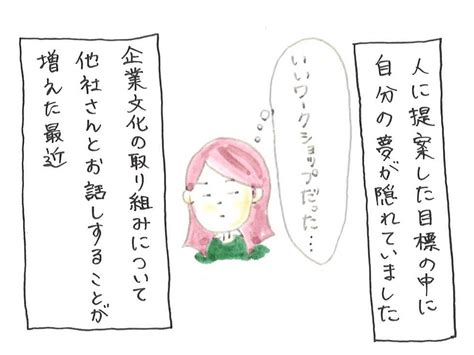 人に提案した目標の中に
自分の夢が隠れていました
いいワークショップだった…
企業文化の取り組みについて
他社さんとお話しすることが
増えた最近